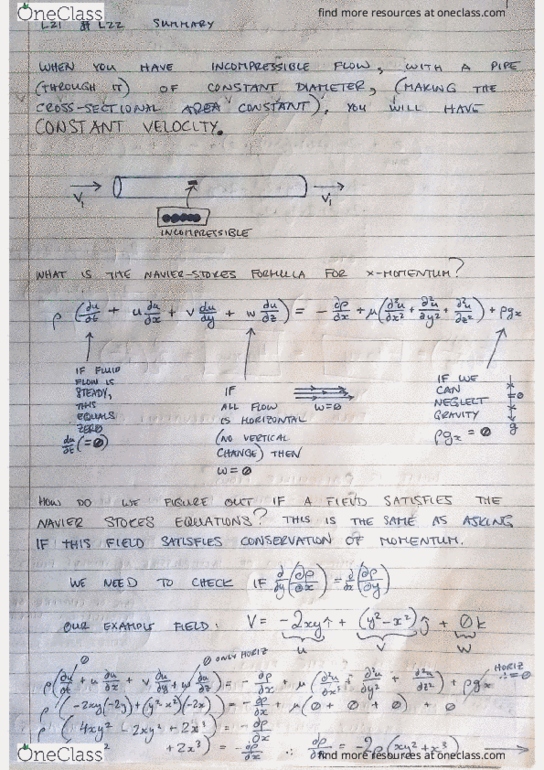 OneClass
find more resources at oneclass.com
L21 # L22 SUMMARY
WHEN YOU HAVE INCOMPRESSIBLE FLOW, WITH A PIPE
(THROUGH IT) OF CONSTANT DIAMETER, (MAKING THE
CROSS-SECTIONAL AREA CONSTANT), YOU WILL HAVE
CONSTANT VELOCITY.
V₁ V₁
INCOMPRESSIBLE
WHAT IS THE NAVIER-STOKES FORMULA FOR x-MOMENTUM?
ρ (du/dt + u du/dx + v du/dy + w du/dz) = - ∂p/∂x + μ(∂²u/∂x² + ∂²u/∂y² + ∂²u/∂z²) + ρgx
IF FLUID
FLOW IS
STEADY,
THIS
EQUALS
ZERO
du/dt (=0)
IF
ALL FLOW
IS HORIZONTAL
(NO VERTICAL
CHANGE) THEN
w=0
w=0
IF WE
CAN
NEGLECT
GRAVITY
ρgx = 0
x
=0
x
g
HOW DO WE FIGURE OUT IF A FIELD SATISFIES THE
NAVIER STOKES EQUATIONS? THIS IS THE SAME AS ASKING
IF THIS FIELD SATISFIES CONSERVATION OF MOMENTUM.
WE NEED TO CHECK IF d/dy(∂p/∂x) = d/dx(∂p/∂y)
OUR EXAMPLE FIELD: V = -2xy î + (y²-x²) ĵ + 0k
u V W
0 0 ONLY HORIZ HORIZ ∴=0
ρ(du/dt + u du/dx + v du/dy + w du/dz) = - ∂p/∂x + μ(∂²u/∂x² + ∂²u/∂y² + ∂²u/∂z²) + ρgx
ρ(-2xy(-2y)+(y²-x²)(-2x)) = - ∂p/∂x + μ(0 + 0 + 0) + 0
ρ(4xy² - 2xy² + 2x³) = - ∂p/∂x
2 + 2x³) = - ∂p/∂x ∴ ∂p/∂x = -2ρ(xy²+x³)
OneClass
find more resources at oneclass.com